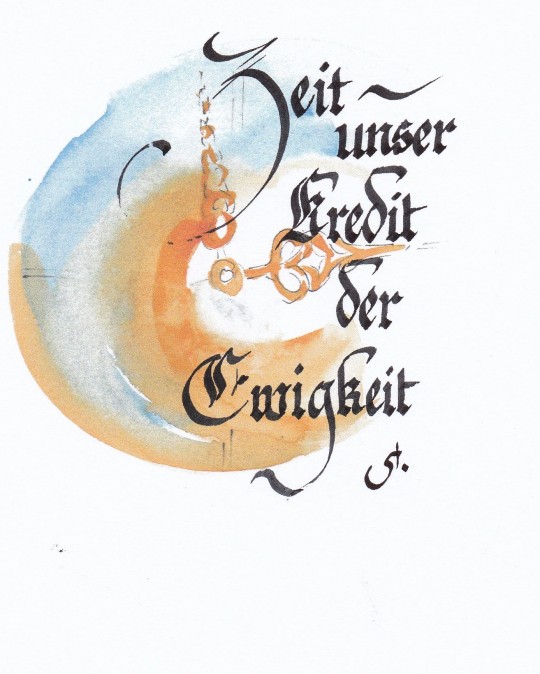 Zeit ~
unser
Kredit
der
Ewigkeit